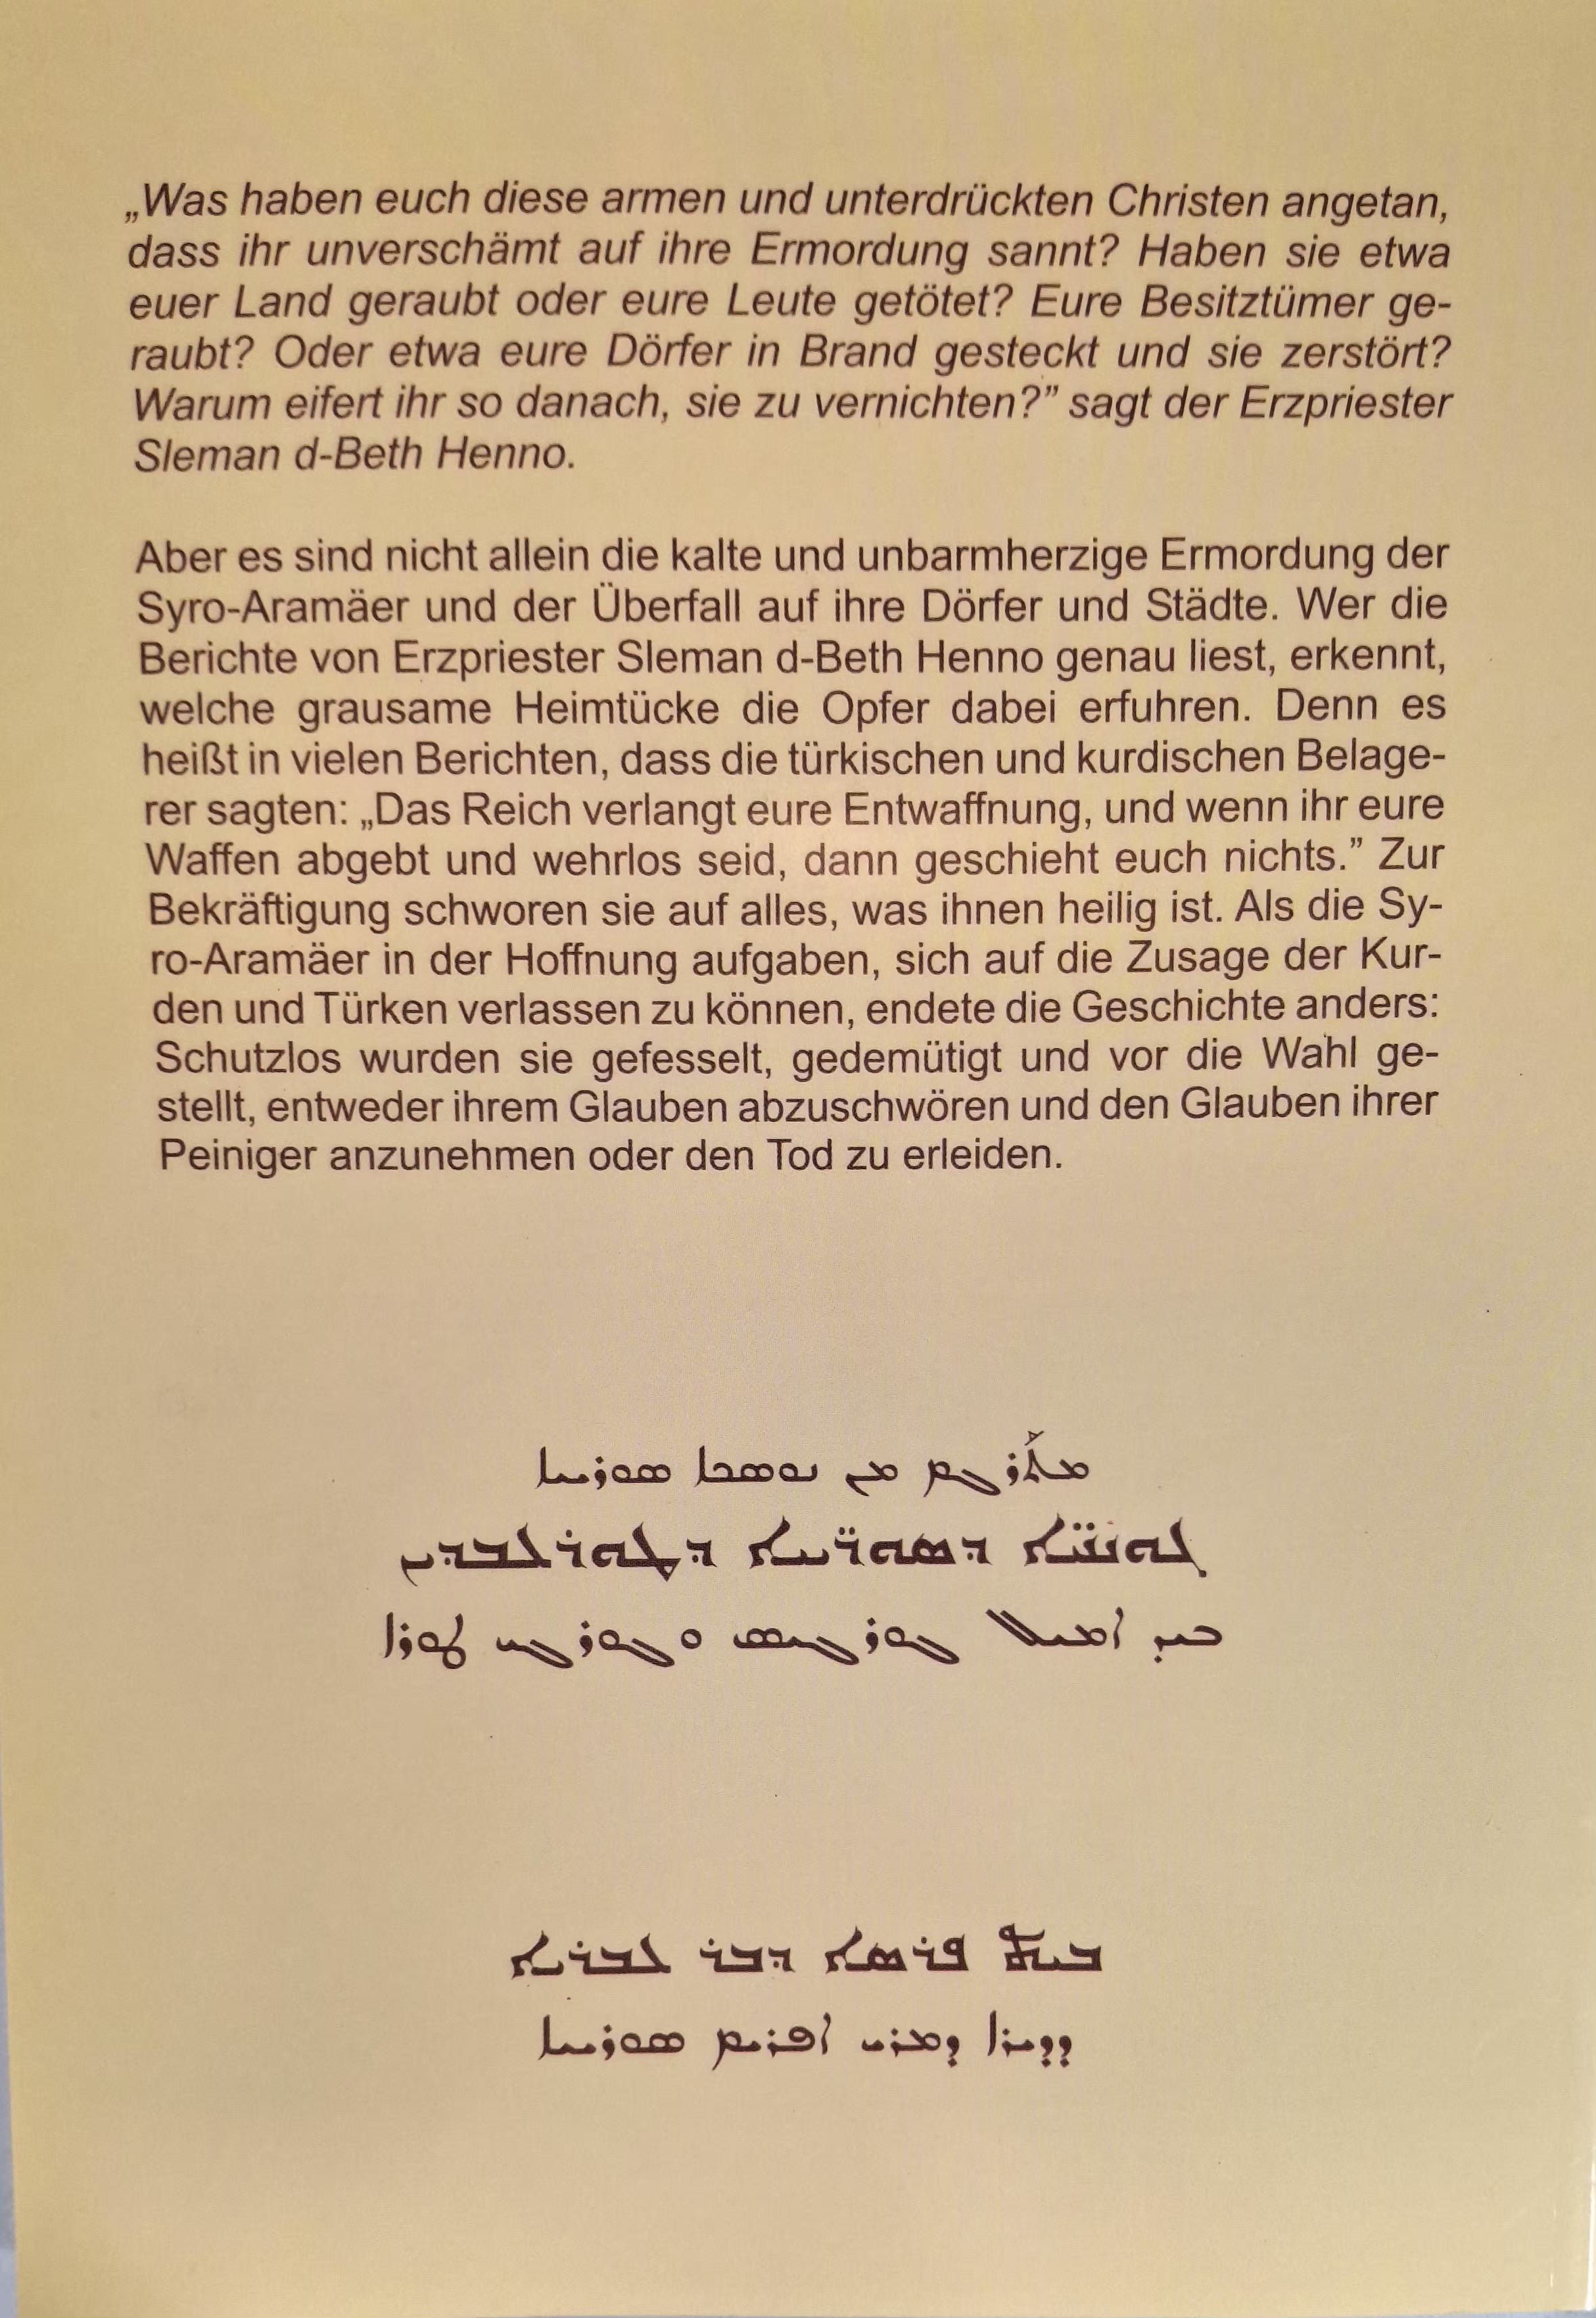 „Was haben euch diese armen und unterdrückten Christen angetan,
dass ihr unverschämt auf ihre Ermordung sannt? Haben sie etwa
euer Land geraubt oder eure Leute getötet? Eure Besitztümer ge-
raubt? Oder etwa eure Dörfer in Brand gesteckt und sie zerstört?
Warum eifert ihr so danach, sie zu vernichten?” sagt der Erzpriester
Sleman d-Beth Henno.
Aber es sind nicht allein die kalte und unbarmherzige Ermordung der
Syro-Aramäer und der Überfall auf ihre Dörfer und Städte. Wer die
Berichte von Erzpriester Sleman d-Beth Henno genau liest, erkennt,
welche grausame Heimtücke die Opfer dabei erfuhren. Denn es
heißt in vielen Berichten, dass die türkischen und kurdischen Belage-
rer sagten: „Das Reich verlangt eure Entwaffnung, und wenn ihr eure
Waffen abgebt und wehrlos seid, dann geschieht euch nichts.” Zur
Bekräftigung schworen sie auf alles, was ihnen heilig ist. Als die Sy-
ro-Aramäer in der Hoffnung aufgaben, sich auf die Zusage der Kur-
den und Türken verlassen zu können, endete die Geschichte anders:
Schutzlos wurden sie gefesselt, gedemütigt und vor die Wahl ge-
stellt, entweder ihrem Glauben abzuschwören und den Glauben ihrer
Peiniger anzunehmen oder den Tod zu erleiden.
ܡܢ ܢܘܣܟܐ ܣܘܪܝܝܐ
ܓܘܢܚ̈ܐ ܕܣܘܪ̈ܝܝܐ ܕܛܘܪܥܒܕܝܢ
ܒܝܕ ܐܡܝܠ ܓܘܪܓܝܣ ܘܓܘܪܓܝ ܛܘܪܐ
ܒܝܬ ܦܪܣܐ ܕܒܪ ܥܒܪܝܐ
ܕܕܝܪܐ ܕܡܪܝ ܐܦܪܝܡ ܣܘܪܝܝܐ